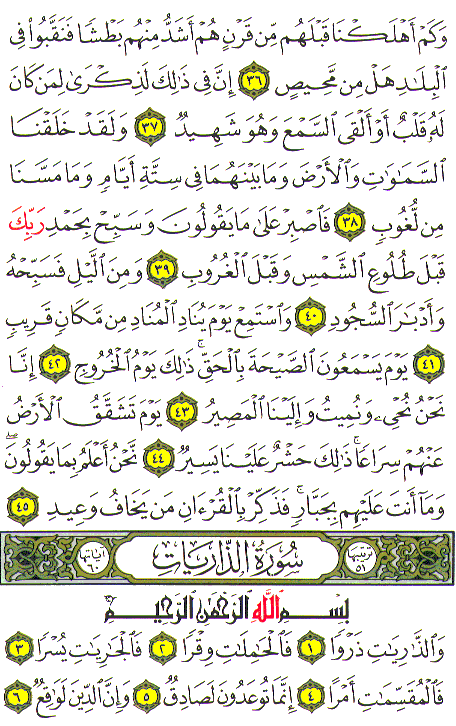 وَكَمْ أَهْلَكْنَا قَبْلَهُم مِّن قَرْنٍ هُمْ أَشَدُّ مِنْهُم بَطْشًا فَنَقَّبُوا۟ فِى
ٱلْبِلَـٰدِ هَلْ مِن مَّحِيصٍ ٣٦ إِنَّ فِى ذَٰلِكَ لَذِكْرَىٰ لِمَن كَانَ
لَهُۥ قَلْبٌ أَوْ أَلْقَى ٱلسَّمْعَ وَهُوَ شَهِيدٌ ٣٧ وَلَقَدْ خَلَقْنَا
ٱلسَّمَـٰوَٰتِ وَٱلْأَرْضَ وَمَا بَيْنَهُمَا فِى سِتَّةِ أَيَّامٍ وَمَا مَسَّنَا
مِن لُّغُوبٍ ٣٨ فَٱصْبِرْ عَلَىٰ مَا يَقُولُونَ وَسَبِّحْ بِحَمْدِ رَبِّكَ
قَبْلَ طُلُوعِ ٱلشَّمْسِ وَقَبْلَ ٱلْغُرُوبِ ٣٩ وَمِنَ ٱلَّيْلِ فَسَبِّحْهُ
وَأَدْبَـٰرَ ٱلسُّجُودِ ٤٠ وَٱسْتَمِعْ يَوْمَ يُنَادِ ٱلْمُنَادِ مِن مَّكَانٍ قَرِيبٍ
٤١ يَوْمَ يَسْمَعُونَ ٱلصَّيْحَةَ بِٱلْحَقِّ ۚ ذَٰلِكَ يَوْمُ ٱلْخُرُوجِ ٤٢ إِنَّا
نَحْنُ نُحْىِۦ وَنُمِيتُ وَإِلَيْنَا ٱلْمَصِيرُ ٤٣ يَوْمَ تَشَقَّقُ ٱلْأَرْضُ
عَنْهُمْ سِرَاعًا ۚ ذَٰلِكَ حَشْرٌ عَلَيْنَا يَسِيرٌ ٤٤ نَّحْنُ أَعْلَمُ بِمَا يَقُولُونَ ۖ
وَمَآ أَنتَ عَلَيْهِم بِجَبَّارٍ ۖ فَذَكِّرْ بِٱلْقُرْءَانِ مَن يَخَافُ وَعِيدِ ٤٥
ترتيبها ٥١ سُورَةُ ٱلذَّارِيَاتِ آياتها ٦٠
بِسْمِ ٱللَّهِ ٱلرَّحْمَـٰنِ ٱلرَّحِيمِ
وَٱلذَّٰرِيَـٰتِ ذَرْوًا ١ فَٱلْحَـٰمِلَـٰتِ وِقْرًا ٢ فَٱلْجَـٰرِيَـٰتِ يُسْرًا ٣
فَٱلْمُقَسِّمَـٰتِ أَمْرًا ٤ إِنَّمَا تُوعَدُونَ لَصَادِقٌ ٥ وَإِنَّ ٱلدِّينَ لَوَٰقِعٌ ٦